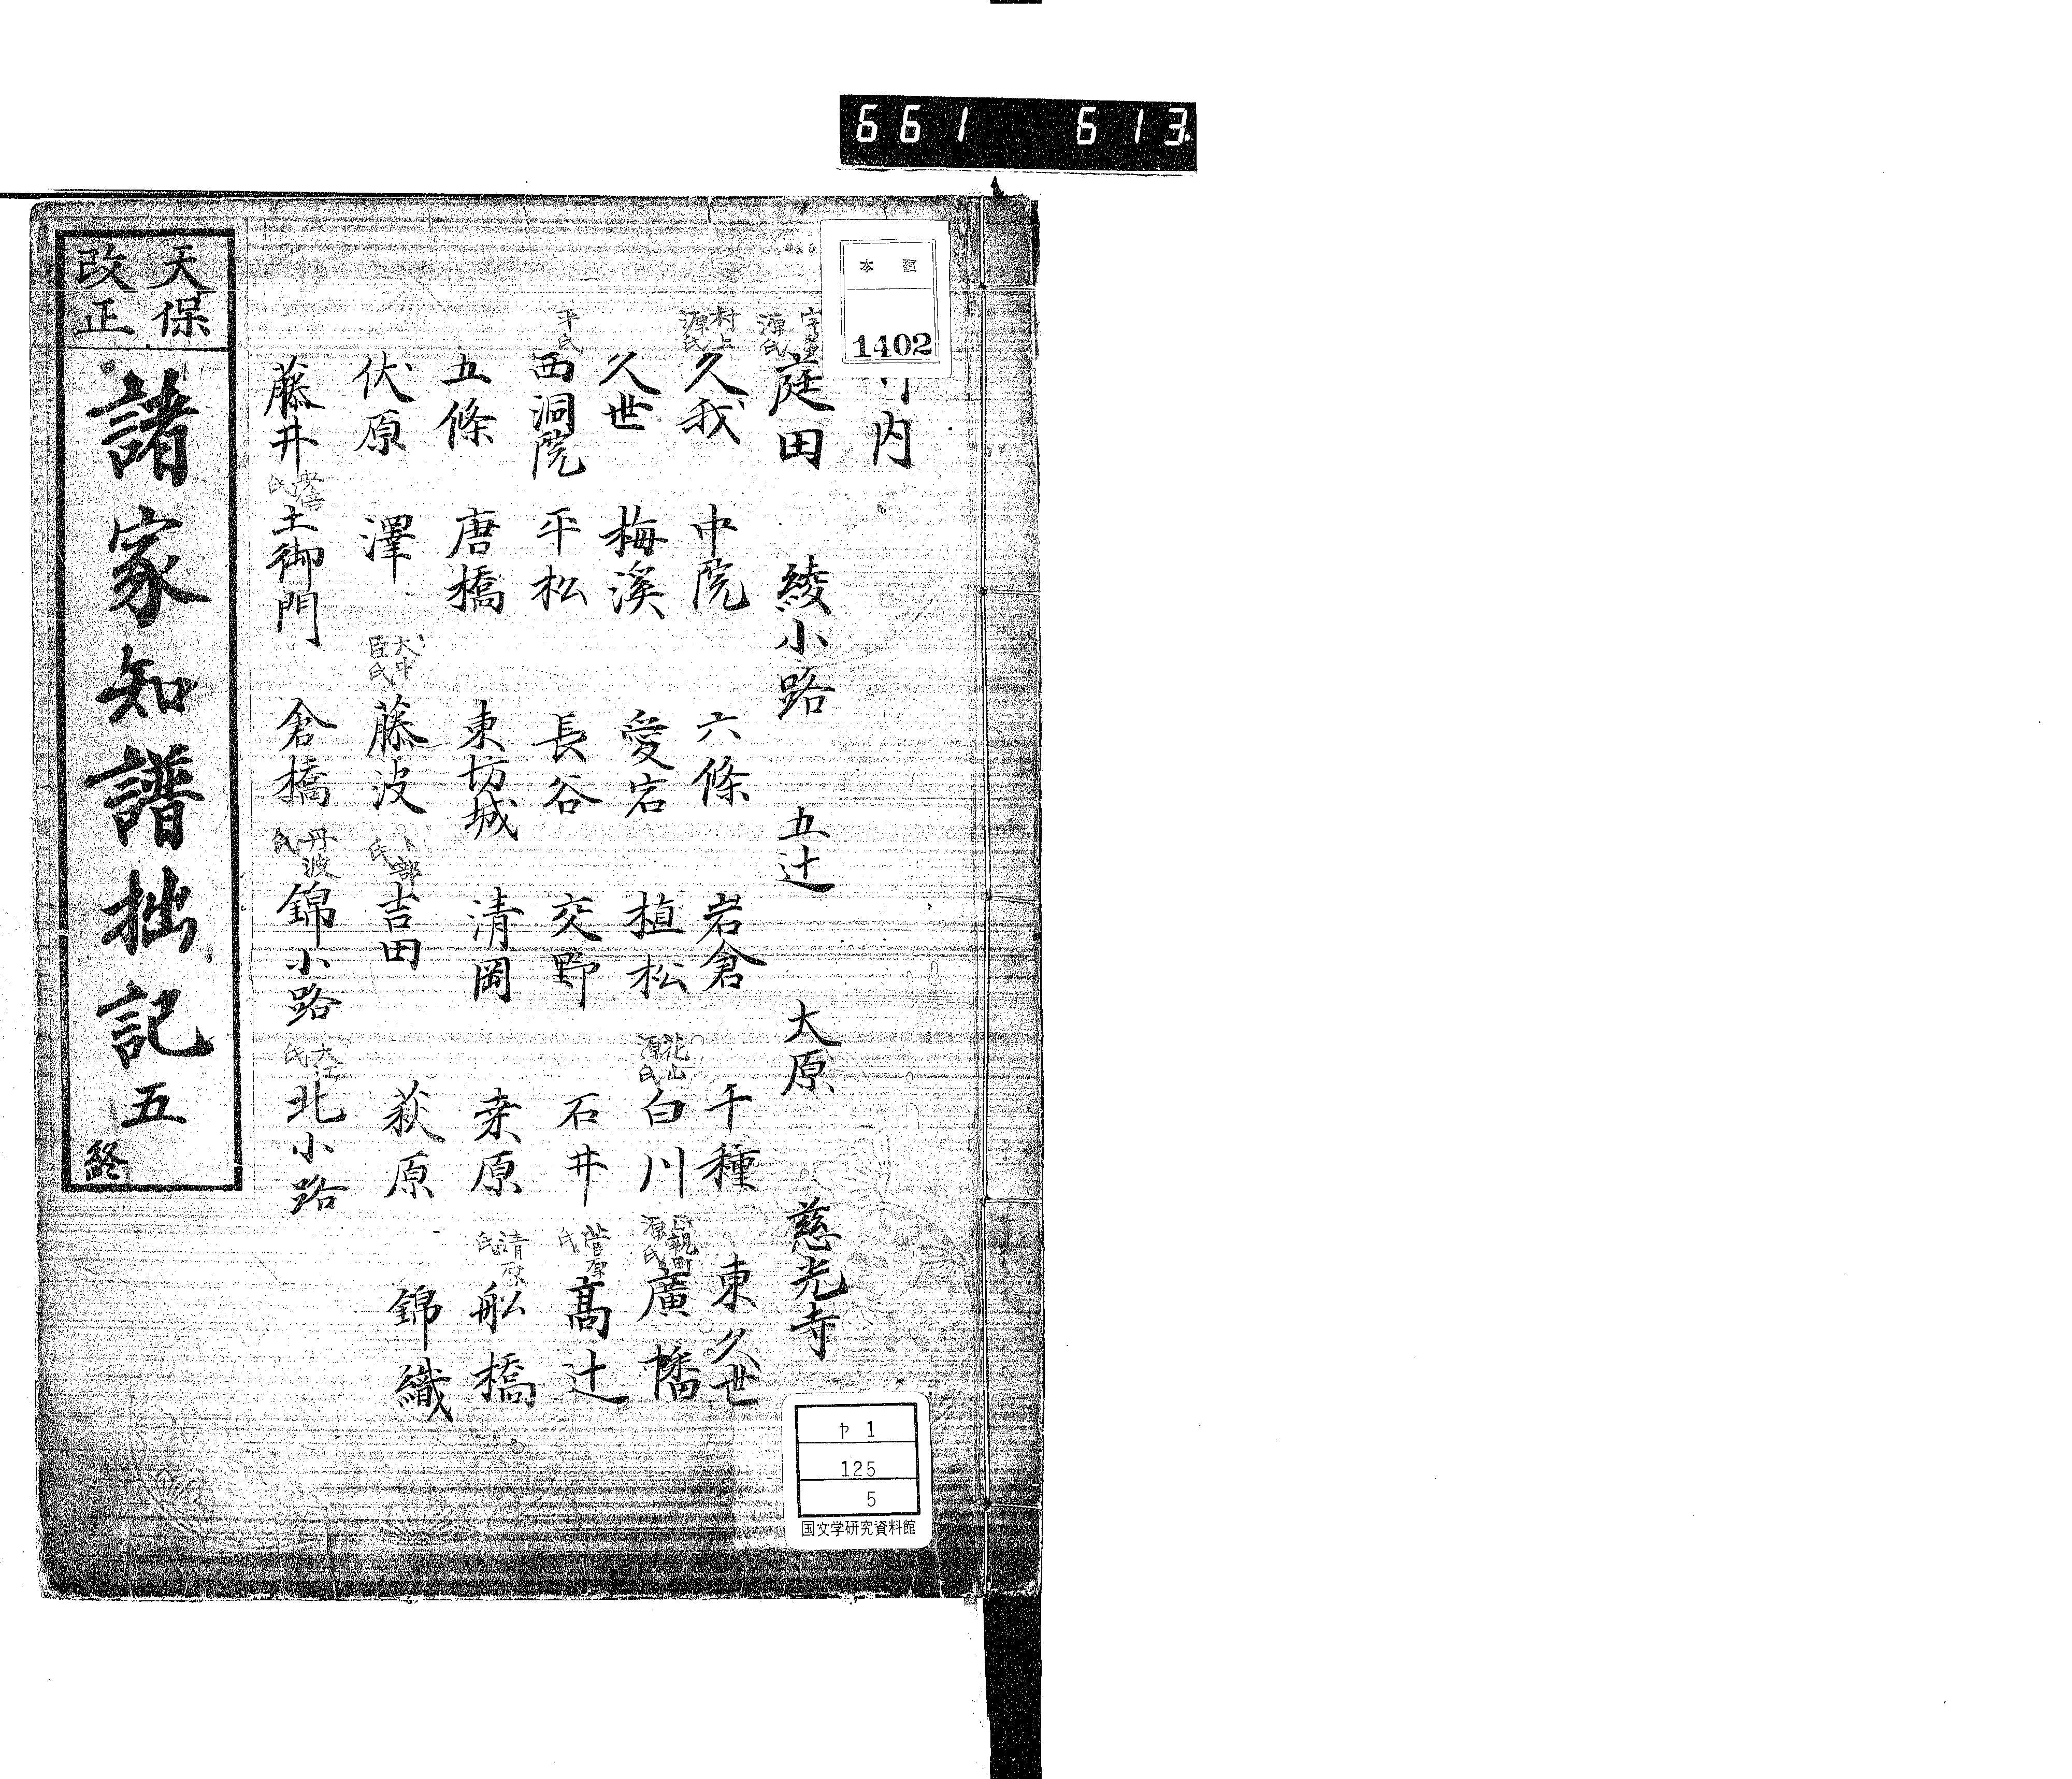 661 613
本
1402
内
源氏 庭田 綾小路 五辻 大原 慈光寺
村上源氏 久我 中院 六條 岩倉 千種 東久世
久世 梅溪 愛宕 植松 花山源氏 白川 正親町源氏 廣幡
平氏 西洞院 平松 長谷 交野 石井 菅原氏 高辻
五條 唐橋 東坊城 清岡 桒原 清原氏 舩橋
伏原 澤 大中臣氏 藤波 卜部氏 吉田 萩原 錦織
藤井 安倍氏 土御門 倉橋 丹波氏 錦小路 大江氏 北小路
天保改正 諸家知譜拙記 五 終
ヤ 1
125
5
国文学研究資料館